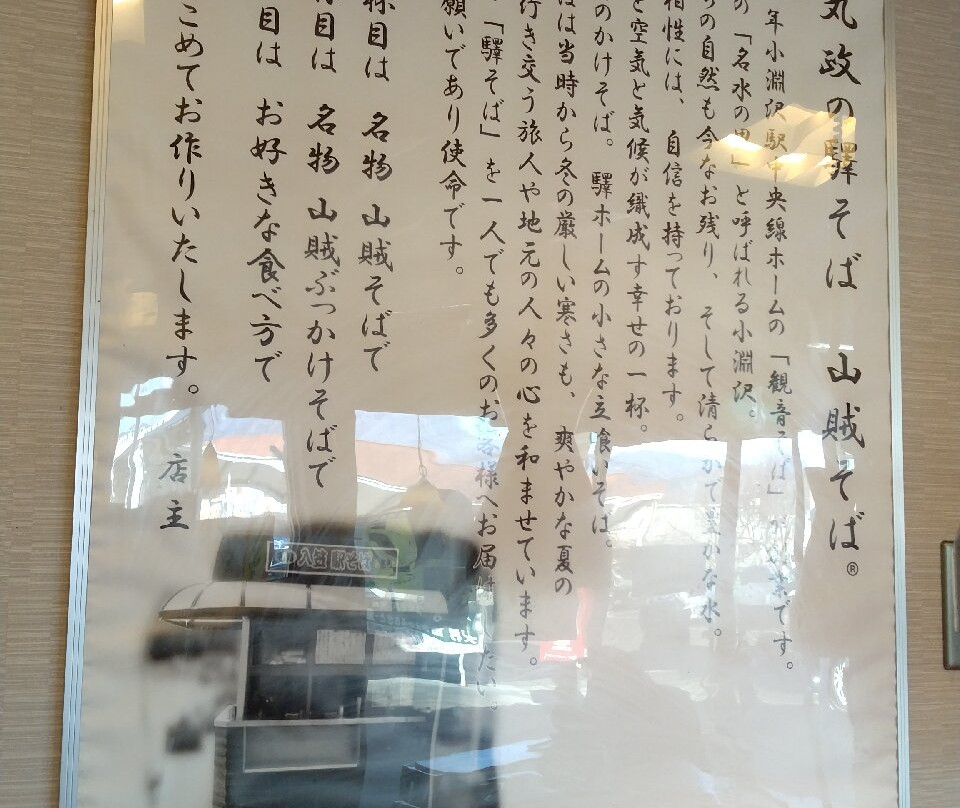 丸政の驛そば 山賊そば®
年小淵沢駅中央線ホームの「観音そば」です。
の「名水の里」と呼ばれる小淵沢。
の自然も今なお残り、そして清らかで豊かな水。
相性には、自信を持っております。
と空気と気候が織成す幸せの一杯。
のかけそば。驛ホームの小さな立喰いそば。
は当時から冬の厳しい寒さも、爽やかな夏の
行き交う旅人や地元の人々の心を和ませています。
「驛そば」を一人でも多くのお客様へお届けしたい。
願いであり使命です。
目は 名物 山賊そばで
目は 名物 山賊ぶっかけそばで
目は お好きな食べ方で
こめてお作りいたします。
店主
駅そば